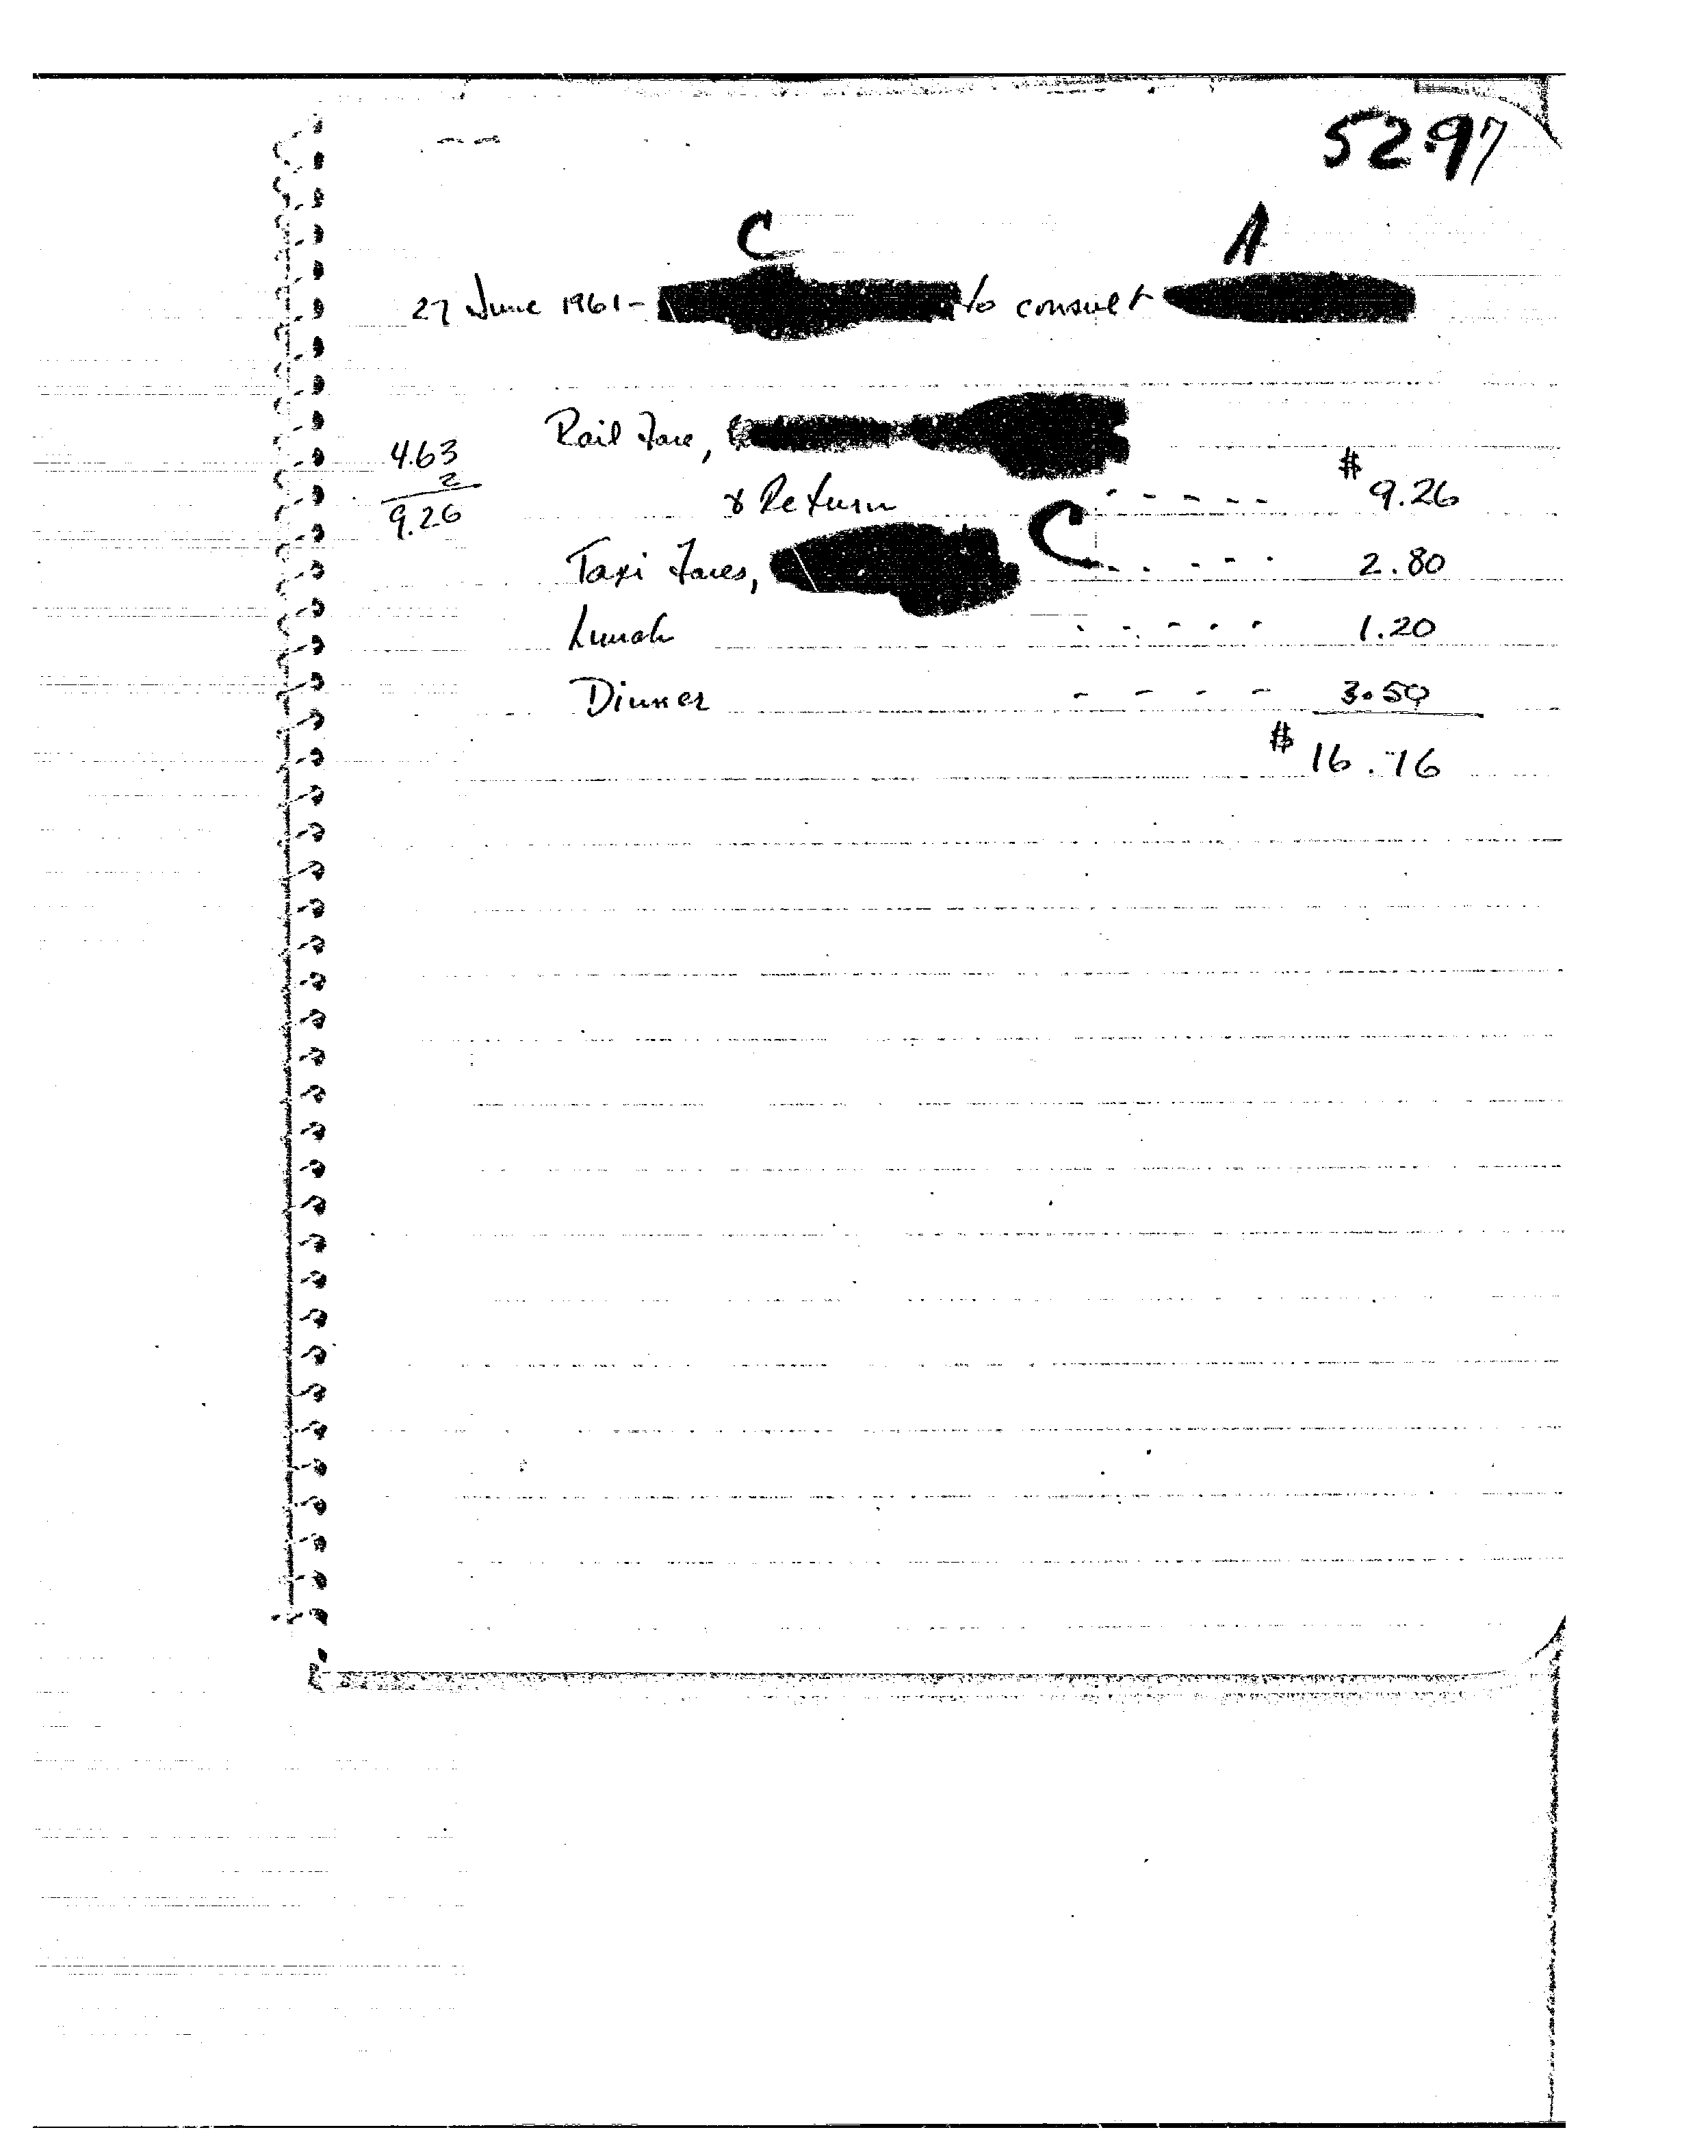 52.97
C A
27 June 1961 - to consult
Rail Fare,
4.63
2
9.26
& Return - - - - - $ 9.26
Taxi Fares, C . . - - . 2.80
Lunch - - - - - 1.20
Dinner - - - - 3.50
$ 16.76